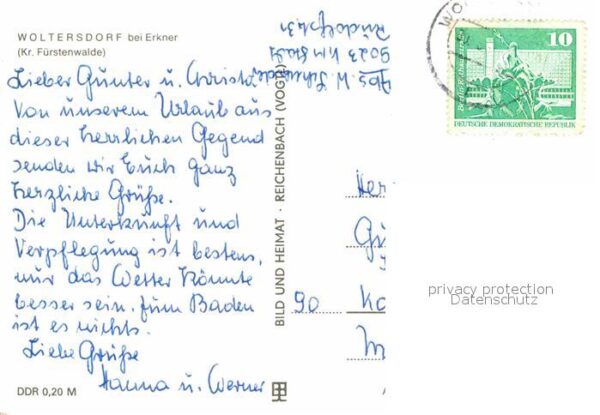 WOLTERSDORF bei Erkner
(Kr. Fürstenwalde)
Lieber Gunter u. Christa
Von unserem Urlaub aus
dieser herrlichen Gegend
senden wir Euch ganz
herzliche Grüße.
Die Unterkunft und
Verpflegung ist bestens,
nur das Wetter könnte
besser sein. Zum Baden
ist es nichts.
Liebe Grüße
Hanna u. Werner
DDR 0,20 M
BILD UND HEIMAT · REICHENBACH (VOGTL)
Abs. W.
9023 KM Stadt
Her
Gü
90 Ka
M
WO
10
DEUTSCHE DEMOKRATISCHE REPUBLIK
privacy protection
Datenschutz